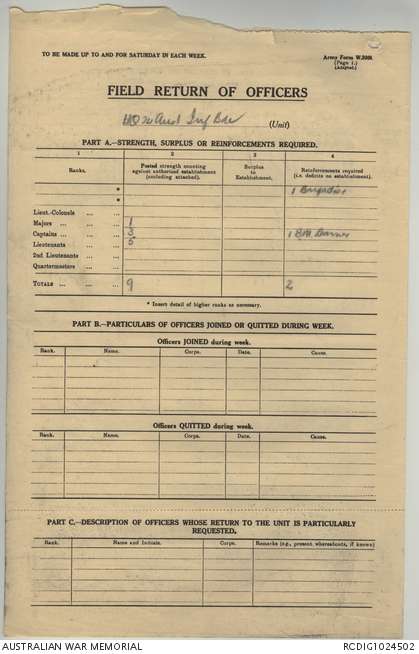 TO BE MADE UP TO AND FOR SATURDAY IN EACH WEEK.
Army Form W.3008.
(Page 1.)
(Adapted.)
FIELD RETURN OF OFFICERS
HQ 20 Aust Inf Bde (Unit)
PART A.—STRENGTH, SURPLUS OR REINFORCEMENTS REQUIRED.
1 2 3 4
Ranks. Posted strength counting against authorized establishment (excluding attached). Surplus to Establishment. Reinforcements required (i.e. deficits on establishment).
* 1 Brigadier
*
Lieut.-Colonels ... ...
Majors ... ... ... 1
Captains ... ... ... 3 1 BM
Lieutenants ... ... 5
2nd Lieutenants ... ...
Quartermasters ... ...
TOTALS ... ... 9 2
* Insert detail of higher ranks as necessary.
PART B.—PARTICULARS OF OFFICERS JOINED OR QUITTED DURING WEEK.
Officers JOINED during week.
Rank. Name. Corps. Date. Cause.
Officers QUITTED during week.
Rank. Name. Corps. Date. Cause.
PART C.—DESCRIPTION OF OFFICERS WHOSE RETURN TO THE UNIT IS PARTICULARLY
REQUESTED.
Rank. Name and Initials. Corps. Remarks (e.g., present whereabouts, if known)
AUSTRALIAN WAR MEMORIAL RCDIG1024502